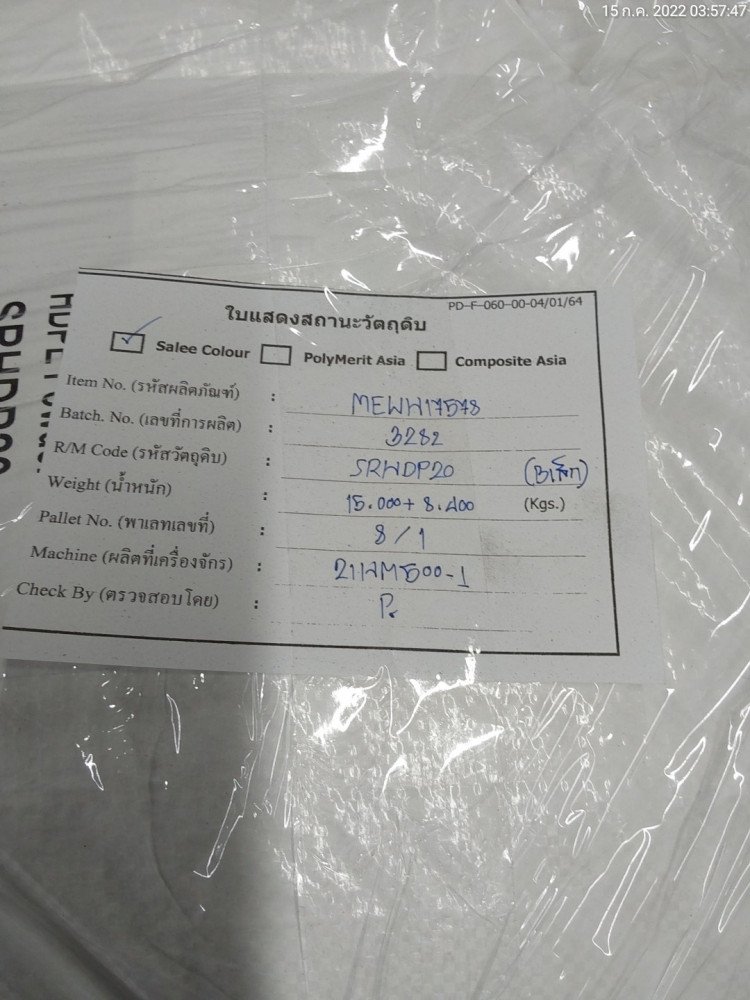 15 ก.ค. 2022 03:57:47
PD-F-060-00-04/01/64
ใบแสดงสถานะวัตถุดิบ
Salee Colour PolyMerit Asia Composite Asia
Item No. (รหัสผลิตภัณฑ์) : MEWH17578
Batch. No. (เลขที่การผลิต) : 3282
R/M Code (รหัสวัตถุดิบ) : SRHDP20
Weight (น้ำหนัก) : 15.000+ 8.400 (Kgs.)
Pallet No. (พาเลทเลขที่) : 8/1
Machine (ผลิตที่เครื่องจักร) : 21HM500-1
Check By (ตรวจสอบโดย) : P.